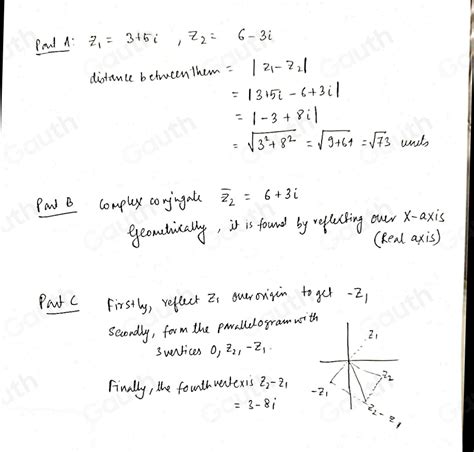 Part A: z₁ = 3+5i , z₂ = 6-3i
distance between them = |z₁-z₂|
= |3+5i - 6+3i|
= |-3+8i|
= √(3²+8²) = √(9+64) = √73 units
Part B Complex conjugate z̄₂ = 6+3i
Geometrically, it is found by reflecting over X-axis
(Real axis)
Part C Firstly, reflect z₁ over origin to get -z₁
Secondly, form the parallelogram with
3 vertices 0, z₂, -z₁.
Finally, the fourth vertex is z₂-z₁
= 3-8i
z₁
z₂
-z₁
z₂-z₁